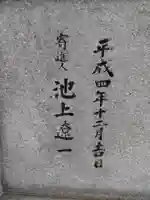 平成四年十二月吉日
寄進人
池上遼一